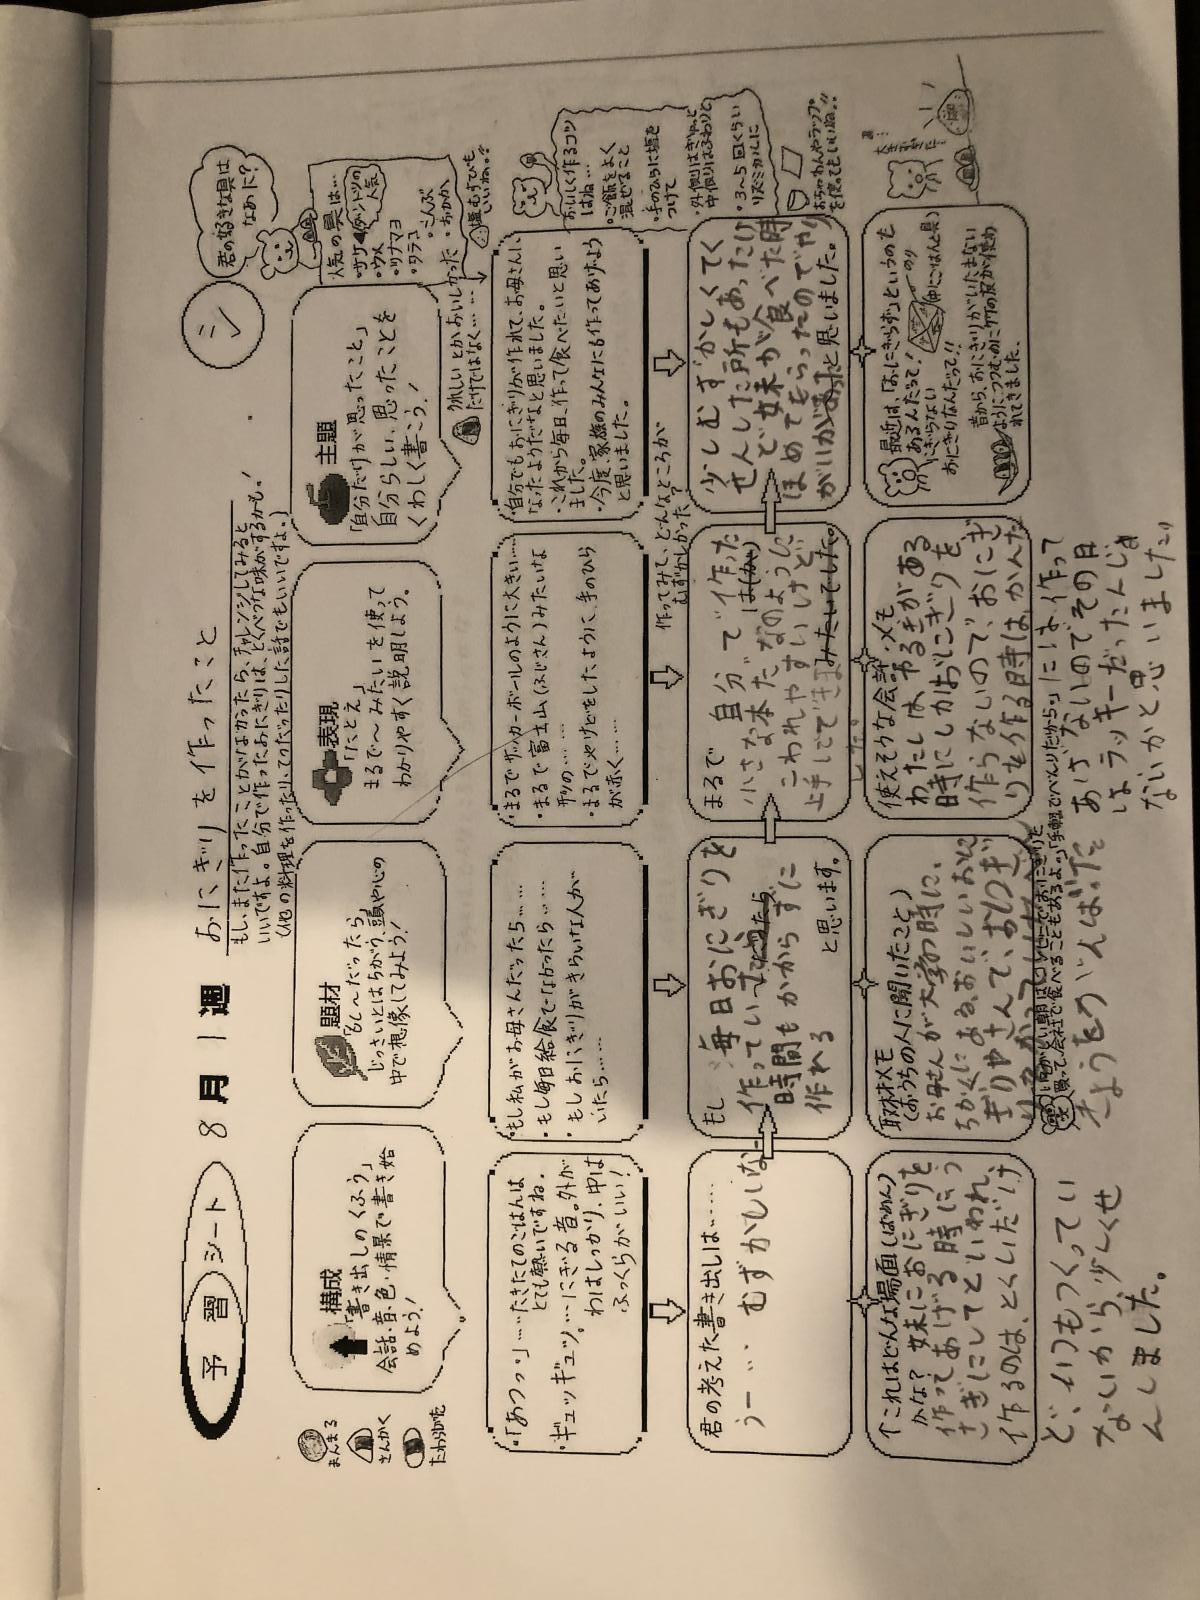 予習シート 8月1週 おにぎりを作ったこと
もし、まだ作ったことがなかったら、チャレンジしてみると
いいですよ。自分で作ったおにぎりは、とくべつな味がするかも!
(他の料理を作ったり手つだったりした話でもいいですよ。)
シ
君の好きな具は
なあに?
まんまる
さんかく
たわらがた
構成
「書き出しのくふう」
会話・音・色・情景で書き始
めよう!
題材
「もし~だったら」
じっさいとはちがう、頭や心の
中で想像してみよう!
表現
「たとえ」
まるで~みたいを使って
わかりやすく説明しよう。
主題
「自分だけが思ったこと」
自分らしい、思ったことを
くわしく書こう!
人気の具は…
・サケ
・ウメ
・ツナマヨ
・タラコ
・こんぶ
・おかか
塩むすびも
いいね。
うれしいとかおいしかった
だけではなく……
・「あつっ。」……たきたてのごはんは
とても熱いですね。
・ギュッギュッ。…にぎる音。外が
わはしっかり、中は
ふっくらがいい!
・もし私がお母さんだったら……
・もし毎日給食でなかったら……
・もしおにぎりがきらいな人が
いたら……
・まるでサッカーボールのように大きい……
・まるで富士山(ふじさん)みたいな
形の……
・まるでやけどをしたように、手のひら
が赤く……
・自分でもおにぎりが作れて、お母さんに
なったようだなと思いました。
・これから毎日、作って食べたいと思い
ました。
・今度、家族のみんなにも作ってあげよう
と思いました。
おいしく作るコツ
はね…
・ご飯をよく
混ぜること
・手のひらに塩を
つけて
・外側はぎゅっと
中側はふわりと
・3~5回くらい
リズミカルに
おちゃわんやラップ
を使ってもいいね!!
作ってみて、どんなところが
むずかしかった?
君の考えた書き出しは……
うー… むずかしいな
もし 毎日おにぎりを
作っていたら
時間もかからずに
作れる
と思います。
まるで 自分で作った
小さな本だなのように
こわれやすいけど
上手にできま
した。
少しむずかしくてく
せんした所もあったけ
ど妹が食べた時
ほめてもらったのでやり
がいがあったと思いました。
↑これはどんな場面(ばめん)
かな? 妹におにぎりを
作ってあげる時にう
さぎにしてといわれ、
作るのは、とくいだけ
ど、いつもつくってい
ないから、少しくせ
んしました。
取材メモ
(おうちの人に聞いたこと)
お母さんが大学の時に、
ちかくにある、おいしいおに
ぎりやさんで、おにぎ
きょうをがんばったと
いそがしい朝はコンビニでおにぎりを
買って、会社で食べることもあるよ。「手軽でべんりだから。」
使えそうな会話・メモ
わたしは、やるきがある
時にしかおにぎりを
作らないので、おにぎ
りを作る時は、かんた
んには作って
あげないのでその日
はラッキーだったんじゃ
ないかと思いました。
最近は、「おにぎらず」というのも
あるんだって!
にぎらない
おにぎりなんだって!!
のり
(中にごはんと具)
昔から、おにぎりがいたまない
ようにつつむのに竹の皮が使わ
れてきました。